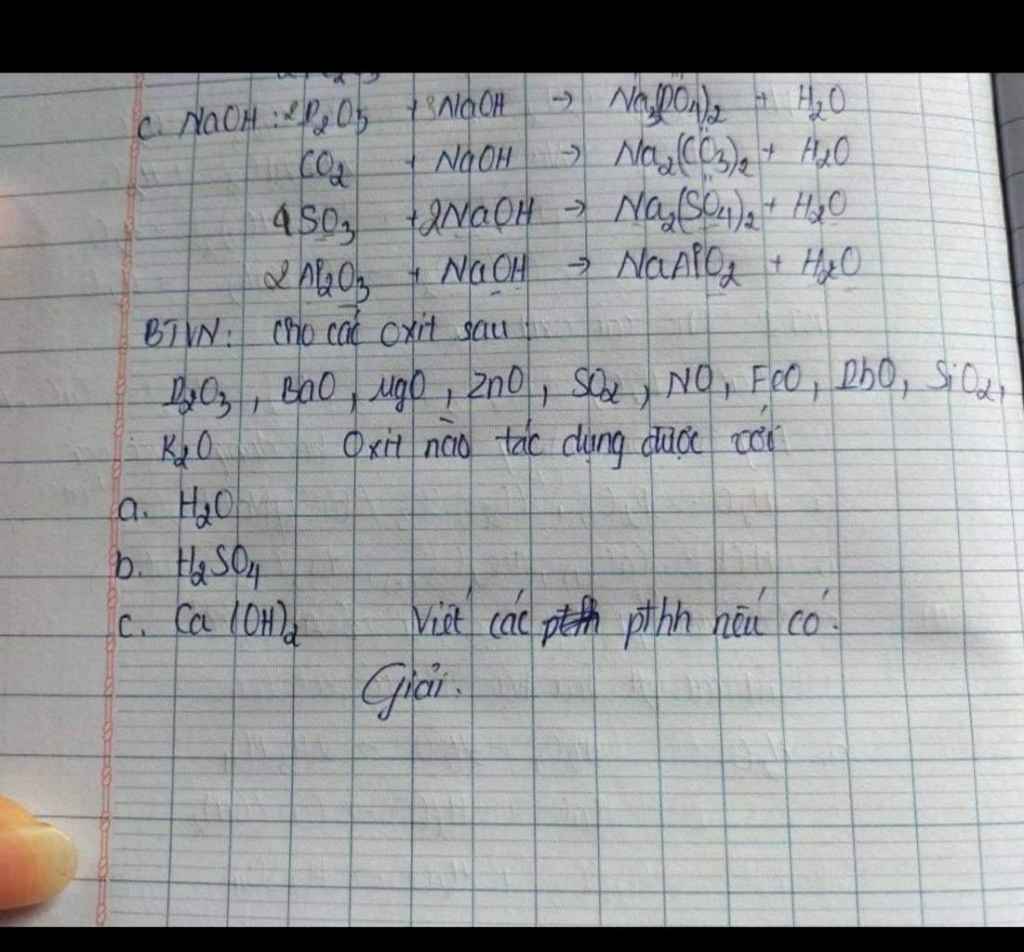 c. NaOH: 2P₂O₅ + 8NaOH → Na₃(PO₄)₂ + H₂O
CO₂ + NaOH → Na₂(CO₃)₂ + H₂O
4SO₃ + 2NaOH → Na₂(SO₄)₂ + H₂O
2Al₂O₃ + NaOH → NaAlO₂ + H₂O
BTVN: Cho các oxit sau
BaO, MgO, ZnO, SO₂, NO, FeO, SiO₂,
K₂O Oxit nào tác dụng được với
a. H₂O
b. H₂SO₄
c. Ca(OH)₂ Viết các pthh nếu có.
Giải.